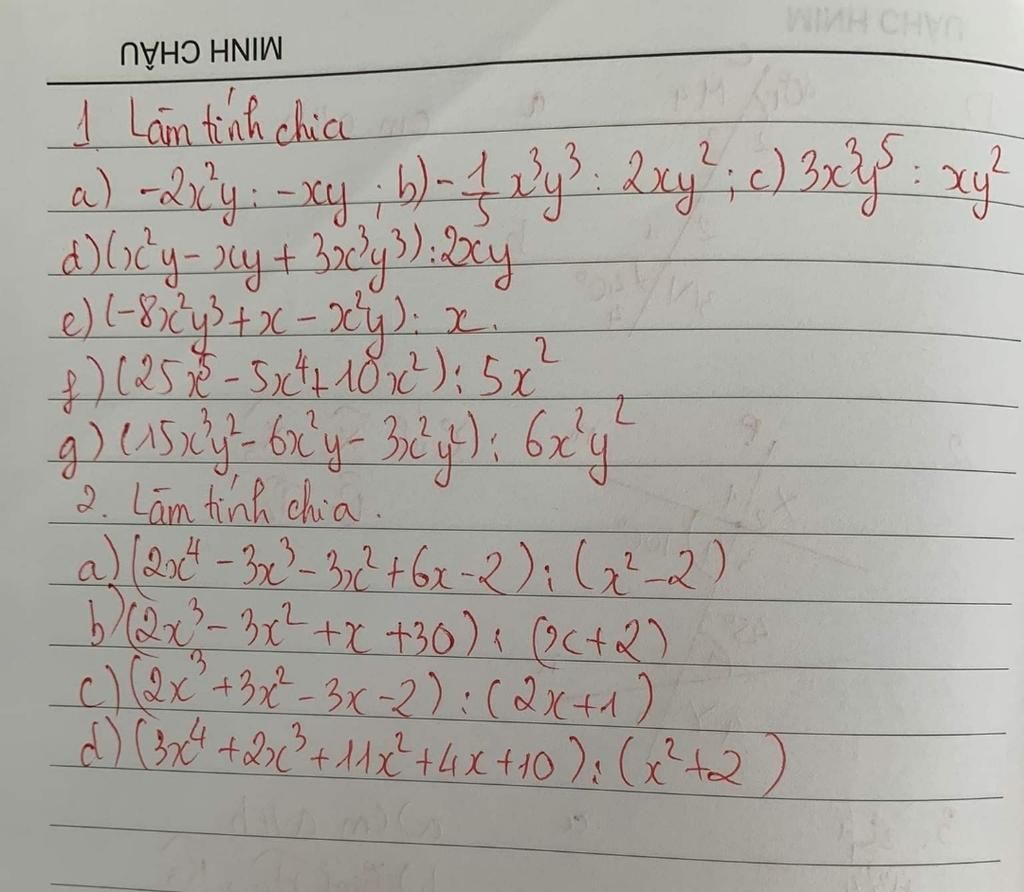 MINH CHÂU
1 Làm tính chia
a) -2x²y : -xy ; b) -1/5 x³y³ : 2xy² ; c) 3x³y⁵ : xy²
d) (x²y - xy + 3x³y³) : 2xy
e) (-8x²y³ + x - x²y) : x.
f) (25x⁵ - 5x⁴ + 10x²) : 5x²
g) (15x³y² - 6x²y - 3x²y²) : 6x²y²
2. Làm tính chia.
a) (2x⁴ - 3x³ - 3x² + 6x - 2) : (x² - 2)
b) (2x³ - 3x² + x + 30) : (x + 2)
c) (2x³ + 3x² - 3x - 2) : (2x + 1)
d) (3x⁴ + 2x³ + 11x² + 4x + 10) : (x² + 2)